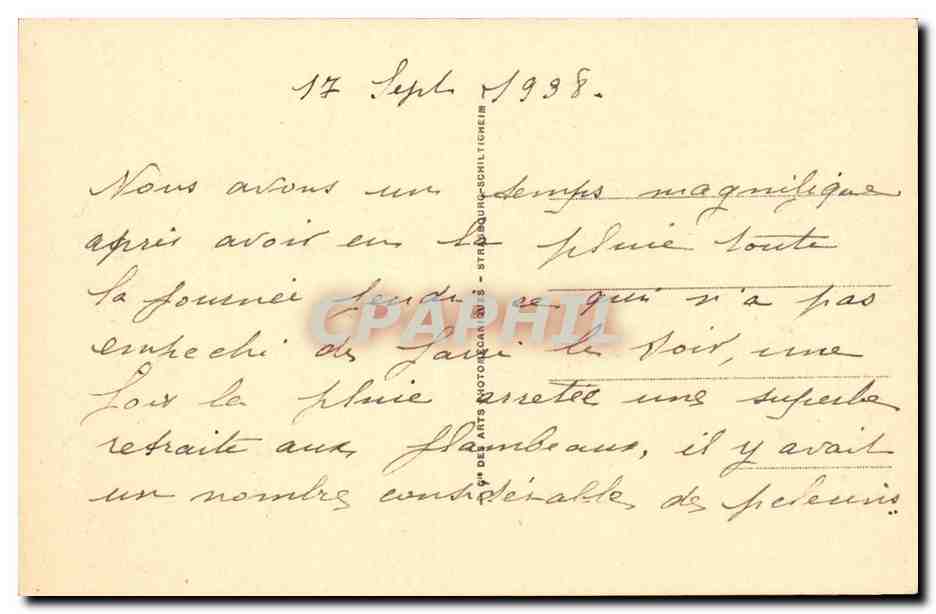 17 Sept 1938.
Nous avons un temps magnifique
après avoir eu la pluie toute
la journée jeudi ce qui n'a pas
empeché de faire le soir, une
fois la pluie arretée une superbe
retraite aux flambeaux, il y avait
un nombre considérable de pelerins
Cie DES ARTS PHOTOMECANIQUES - STRASBOURG-SCHILTIGHEIM
CPAPHIL